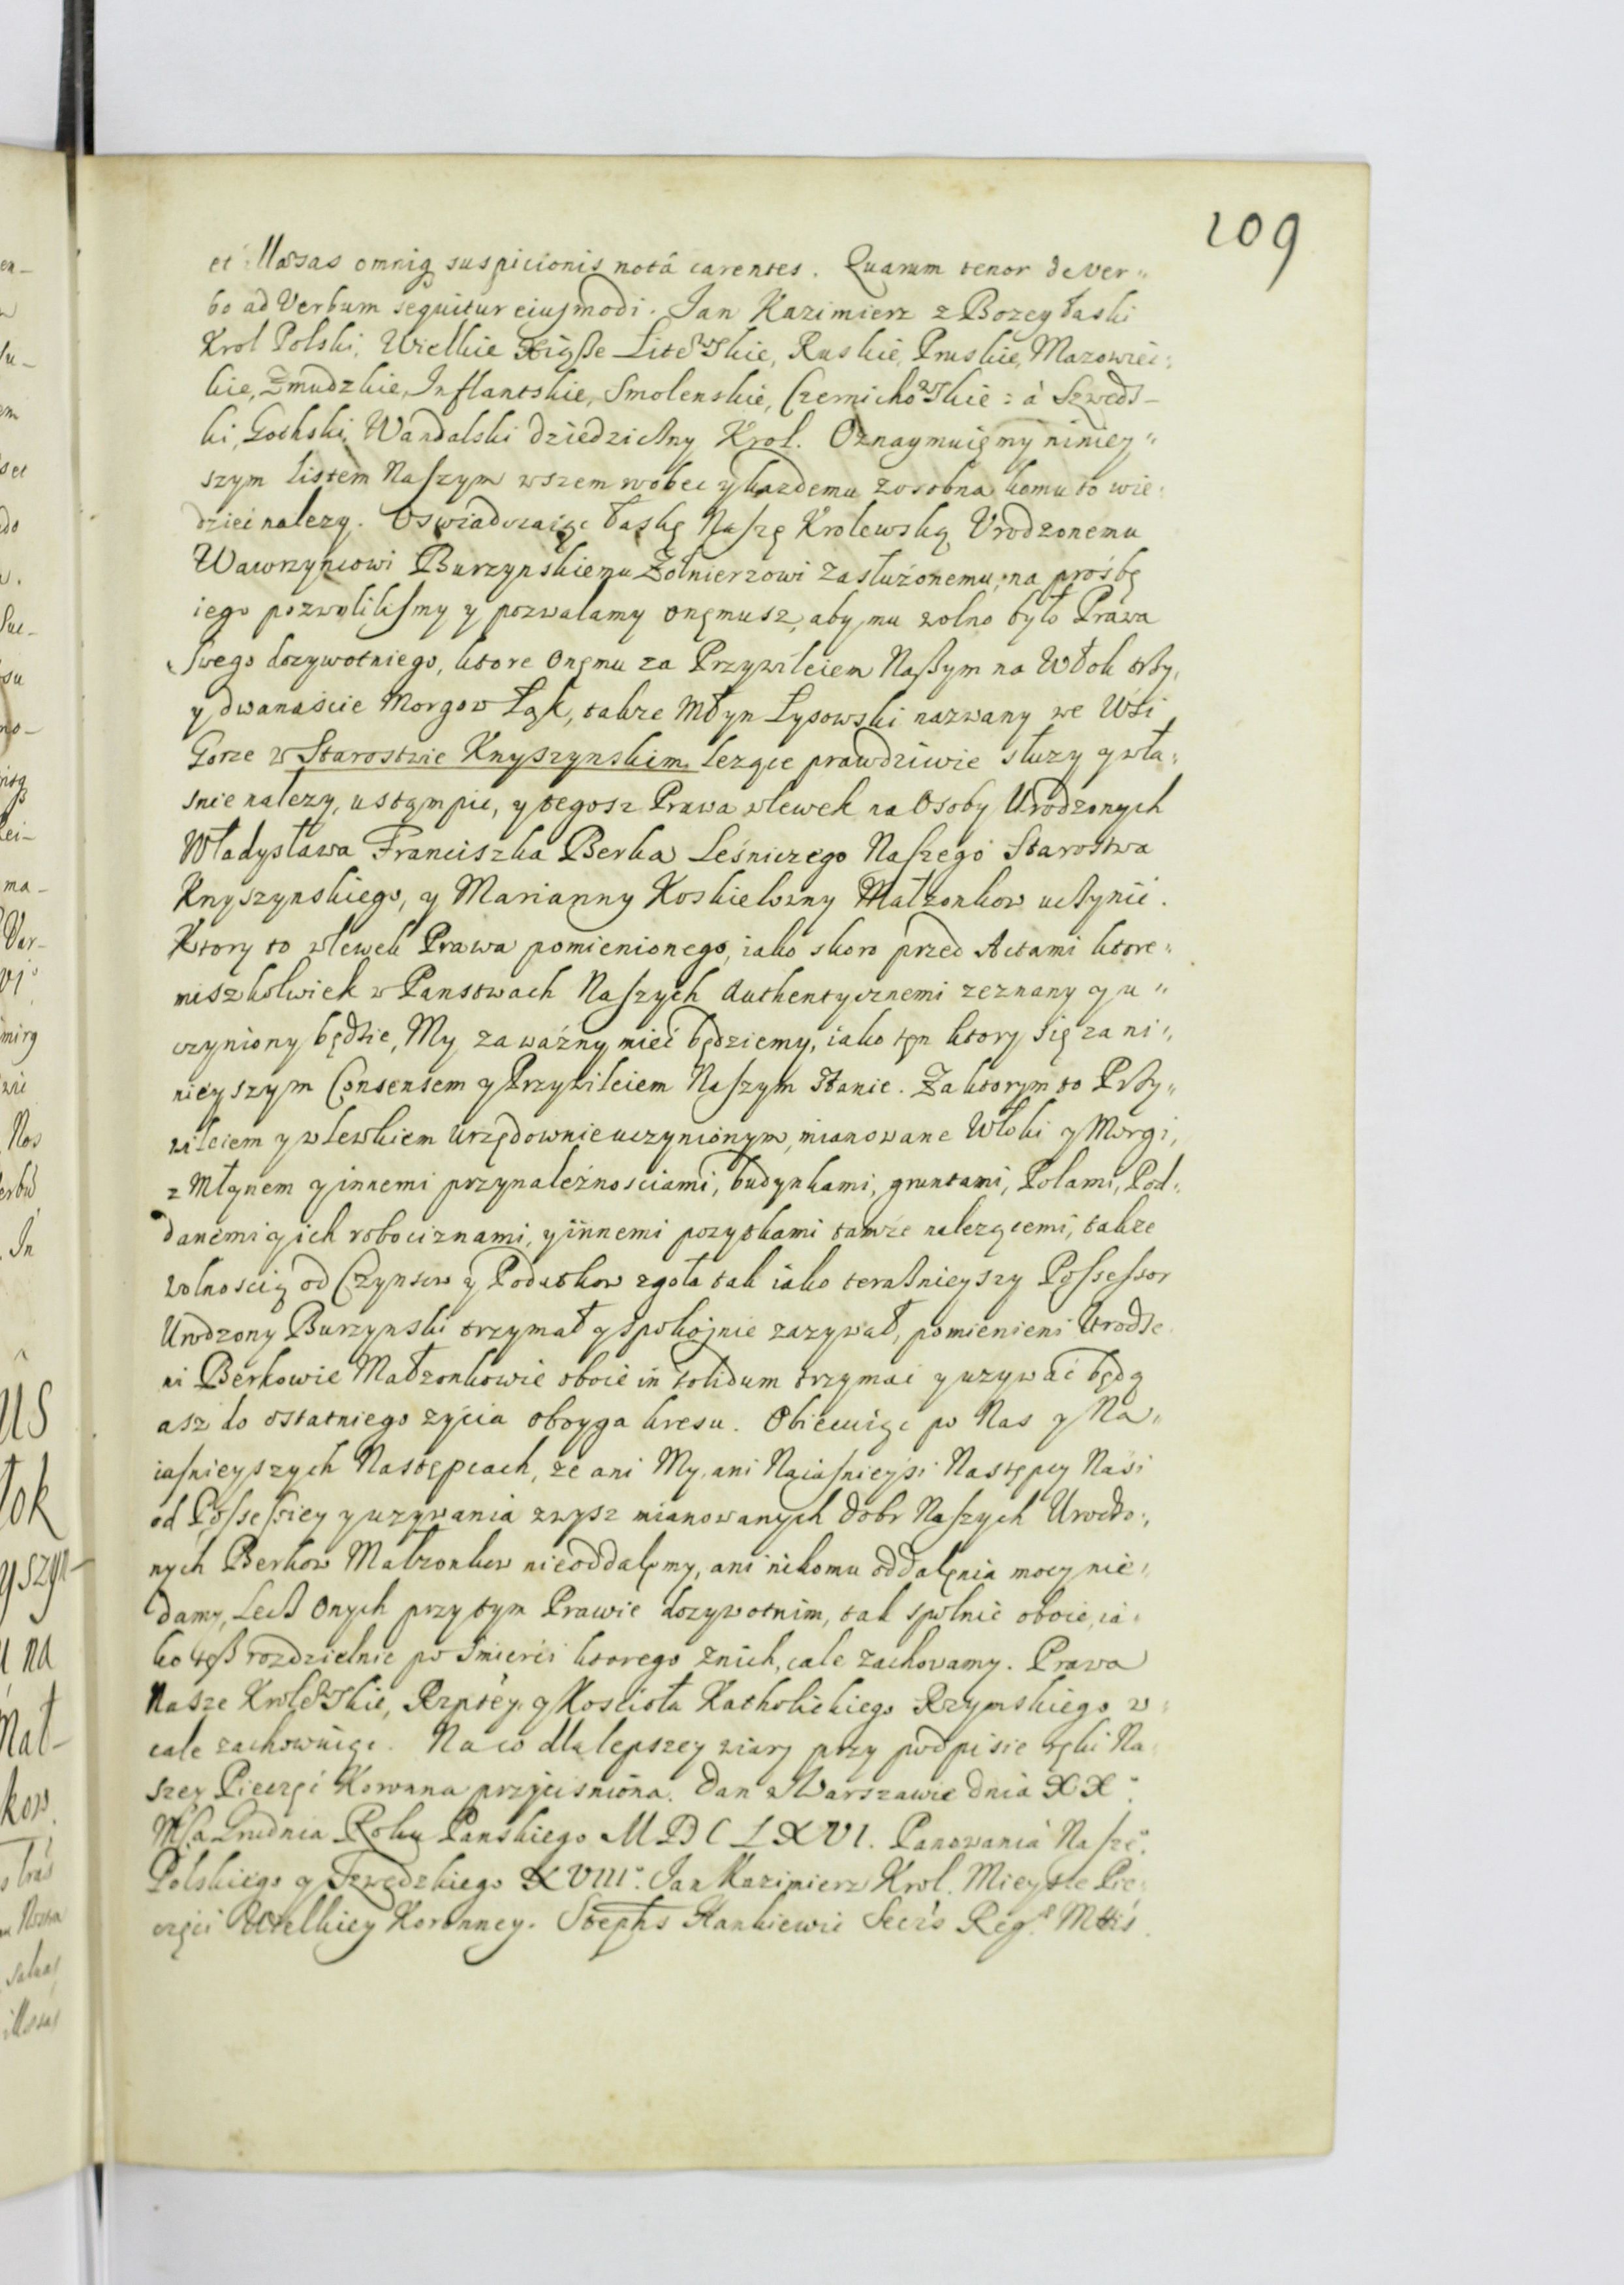 109
et illæsas omniq suspicionis notâ carentes. Quarum tenor de ver„
bo ad Verbum sequitur eiusmodi. Jan Kazimierz z Bozey łaski
Krol Polski, Wielkie Xiąże Litewskie, Ruskie, Pruskie, Mazowiec:
kie, Zmudzkie, Inflantskie, Smolenskie, Czernichowskie: à Szwedz-
ki, Gothski, Wandalski dziedziczny Krol. Oznaymuięmy niniey„
szym listem Naszym wszem wobec y kazdemu zosobna komu to wie:
dziec nalezy. Oswiadczaiąc łaskę Naszę Krolewską Vrodzonemu
Wawrzyncowi Burzynskiemu Zołnierzowi zasłużonemu, na prośbę
iego pozwolilismy y pozwalamy onęmusz, aby mu wolno było Prawa
swego dozywotniego, ktore onęmu za Przywileiem Naszym na Włok trzy,
y dwanaście Morgow Łąk, takze Młyn Łysowski nazwany we Wśi
Gorze w Starostwie Knyszynskim lezące prawdziwie słuzy y wła:
snie nalezy, ustąmpic, y tegosz Prawa wlewek na Osoby Urodzonych
Władysława Franciszka Berka Leśniczego Naszego Starostwa
Knyszynskiego, y Marianny Koskielwny Małzonkow uczynic.
Ktory to wlewek Prawa pomienionego, iako skoro przed Actami ktore:
miszkolwiek w Panstwach Naszych Authentycznemi zeznany y u„
czyniony będzie, My za ważny mieć będziemy, iako tęn ktory się za ni„
nieyszym Consensem y Przywileiem Naszym stanie. Za ktorym to Przy„
wileiem y wlewkiem urzędownie uczynionym, mianowane Włoki y Morgi,
z Młynem y innemi przynależnosciami, budynkami, gruntami, Polami, Pod:
danemi y ich robociznami, y innemi pozytkami tamże nalezącemi, takze
wolnoscią od Czynszow y Podatkow zgoła tak iako teraznieyszy Possessor
Urodzony Burzynski trzymał y spokojnie zazywał, pomienieni Urodze
ni Berkowie Małzonkowie oboie in solidum trzymac y uzywać będą
asz do ostatniego zyćia oboyga kresu. Obiecuiąc po Nas y Na„
iasnieyszych Nastęmpcach, ze ani My, ani Naiasnieysi Następcy Nasi
od Possessiey y uzywania zwysz mianowanych dobr Naszych Urodzo:
nych Berkow Malzonkow nieoddalęmy, ani nikomu oddalęnia mocy nie„
damy, Lecz Onych przy tym Prawie dozywotnim, tak społnie oboie, ia:
ko tęsz rozdzielnie po śmierci ktorego znich, cale zachowamy. Prawa
Nasze Krolewskie, Rzptey y Kościoła Katholickiego Rzymskiego w
cale zachowuiąc. Na co dla lepszey wiary przy podpisie ręki Na
szey Pieczęć Koronna przyćisniona. Dan w Warszawie dnia XX.
Msca Grudnia Roku Panskiego MDCLXVI. Panowania Naszeº.
Polskiego y Szwedzkiego XVIIIº. Jan Kazimierz Krol. Mieysce Pie
częci Wielkiey Koronney. Stephs Hankiewic Secrs Regᵃᵉ Mttis.